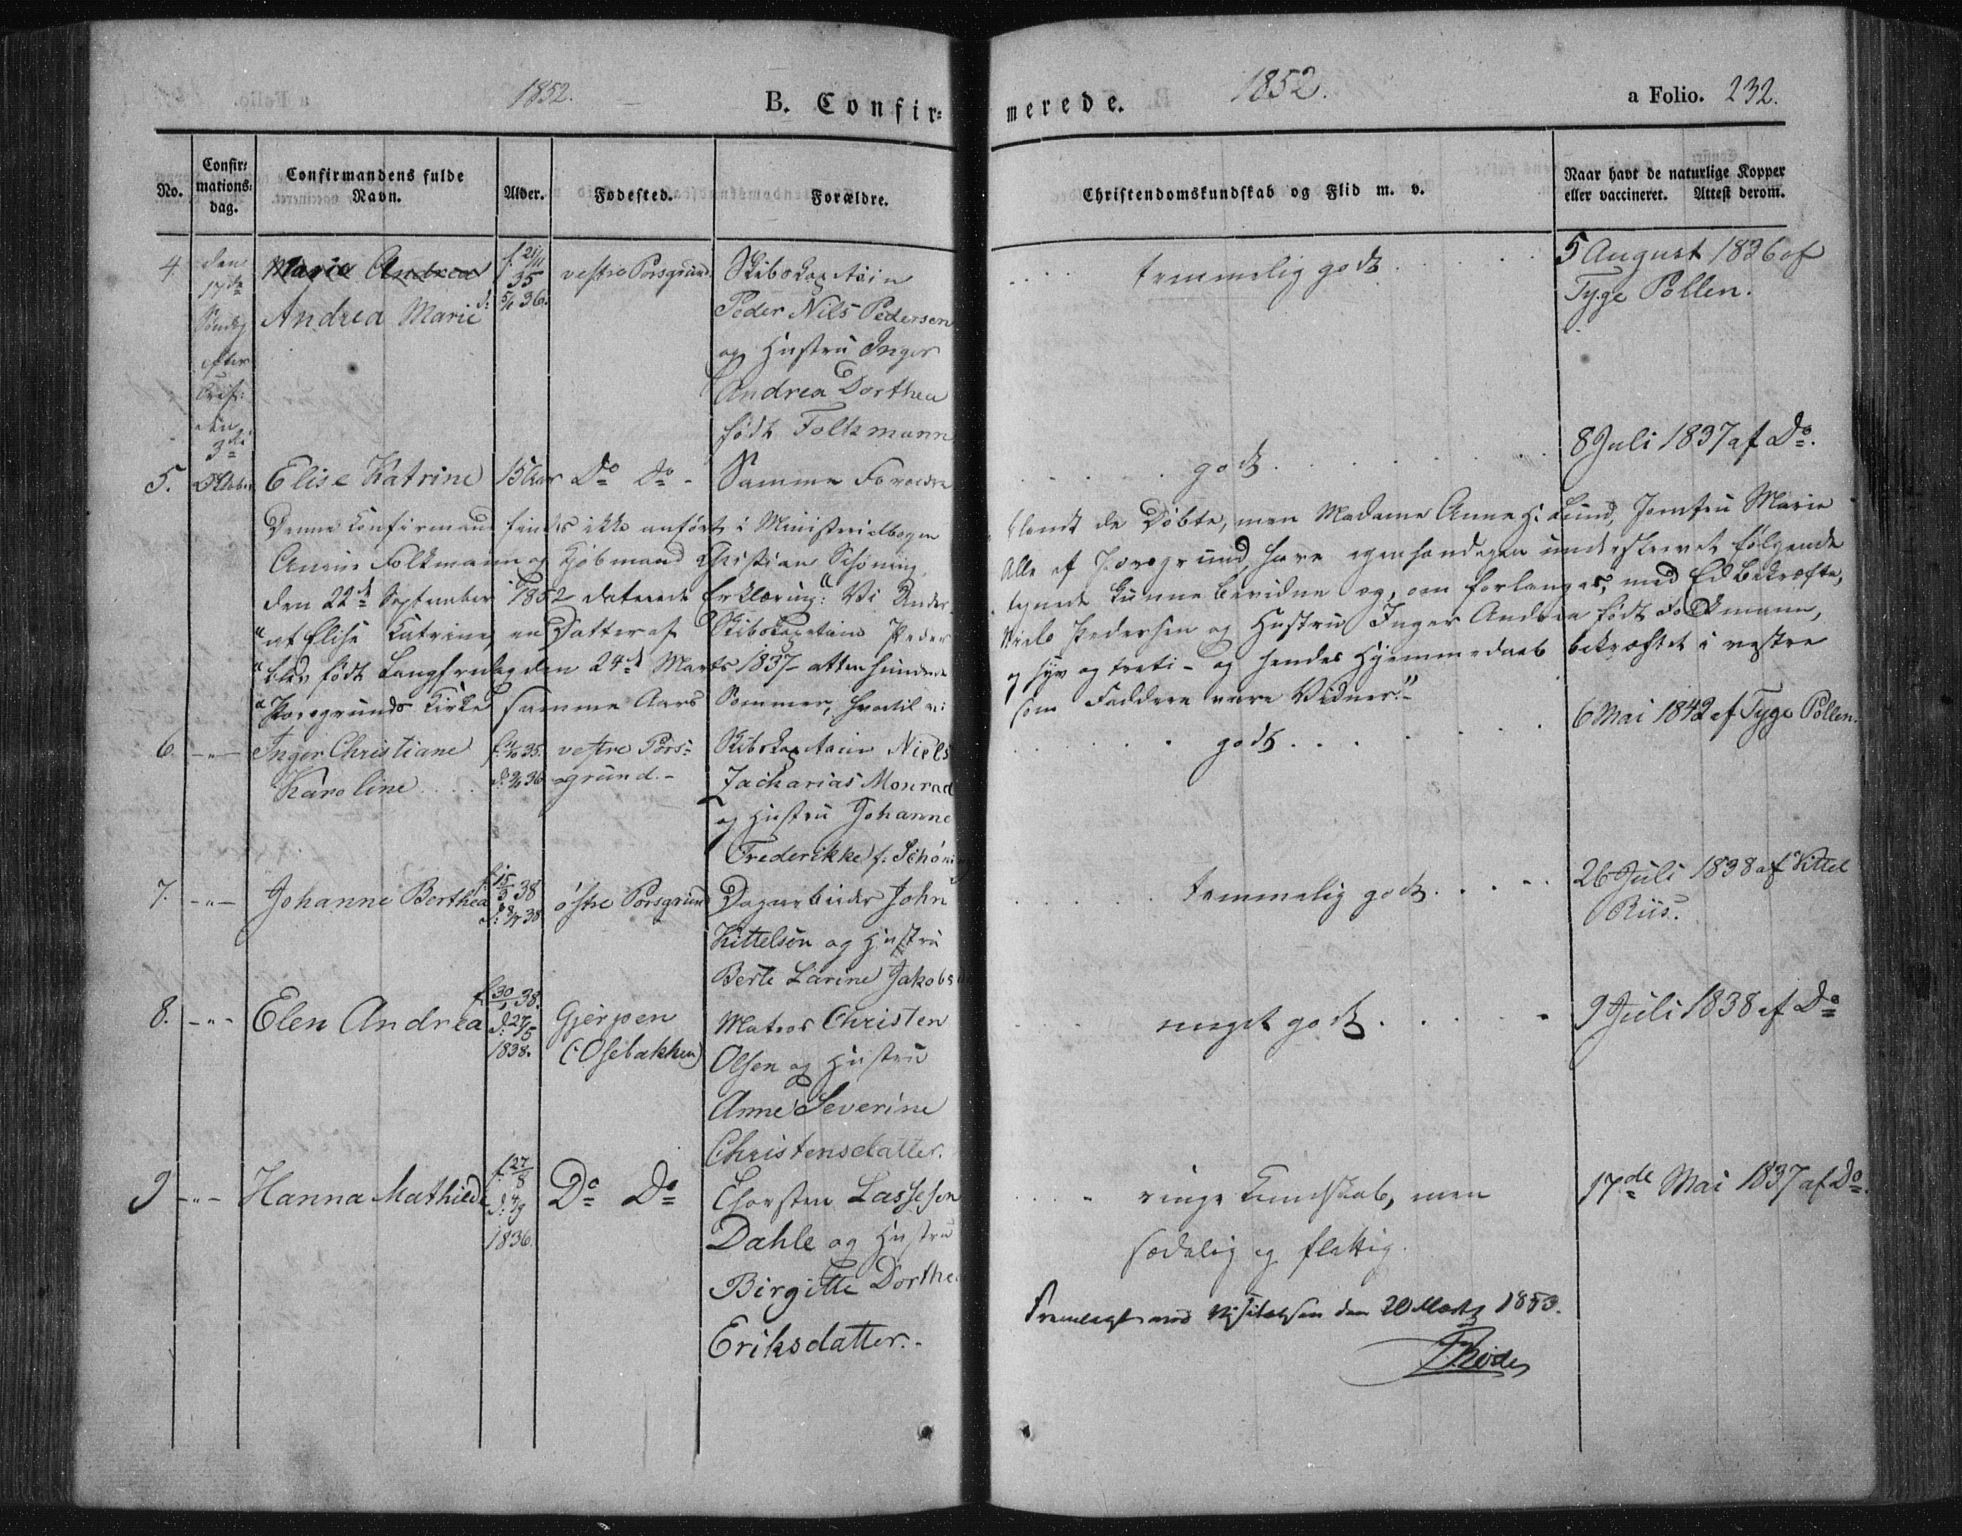 1852.
B. Confirmerede.
1852.
a Folio. 232.
No.
Confir=
mations=
dag.
Confirmandens fulde
Navn.
Alder.
Fødested.
Forældre.
Christendomskundskab og Flid m. v.
Naar havt de naturlige Kopper
eller vaccineret. Attest derom.
4.
den
17de
Søndag
efter
Trefol:
den
3die
Octbr.
Maria Andrea
Andrea Marie
f. 21/11
35
d: 5/6 36.
vestre Porsgrund
Skibskaptain
Peder Nils Pedersen
og Hustru Inger
Andrea Dorthea
født Folkmann
temmelig godt
5 August 1836 af
Tyge Pollen.
5.
Elise Katrine
15 Aar
Do Do -
Samme Forældre
godt
8 Juli 1837 af Do.
Denne Confirmand findes ikke anført i Ministerialbogen
blandt de Døbte, men Madame Anne H. Lund, Jomfru Marie
Folkmann og Kjøbmand Christian Schøning,
Alle af Porsgrund, have egenhændigen underskrevet følgende
den 22de September 1852 daterede Erklæring: "Vi Under-
tegnede kunne bevidne og, om forlanges, med Ed bekræfte,
"at Elise Katrine, en Datter af Skibskaptain Peder
Niels Pedersen og Hustru Inger Andrea født Folkmann,
"blev født Langfredag den 24de Marts 1837 atten hundrede
og syv og treti - og hendes Hjemmedaab bekræftet i vestre
"Porsgrunds Kirke samme Aars Sommer, hvortil vi
som Faddere vare Vidner."
6.
-"-
Inger Christiane
Karoline
vestre Pors-
grund. -
Skibskaptain Niels
Zacharias Monrad
og Hustru Johanne
Frederikke f. Schøning
godt
6 Mai 1842 af Tyge Pollen.
7.
-"-
Johanne Berthea
f. 15/5 38
østre Porsgrund
Dagarbeider John
Kittelsen og Hustru
Berte Larine Jakobs
temmelig godt
26 Juli 1838 af Kittel
Riis.
8.
-"-
Elen Andrea
f. 30/1 38.
d. 27/5
1838.
Gjerpen
(Osebakken)
Matros Christen
Olsen og Hustru
Anne Severine
Christensdatter.
meget godt
9 Juli 1838 af Do
9
-"-
Hanna Mathilde
f. 27/8
d. 4/9
1836.
Do Do
Thorsten Lassesen
Dahle og Hustru
Birgitte Dorthea
Eriksdatter. -
ringe Kundskab, men
sædelig og flittig.
17de Mai 1837 af Do.
Fremlagt ved Visitatsen den 20 Marts 1853.